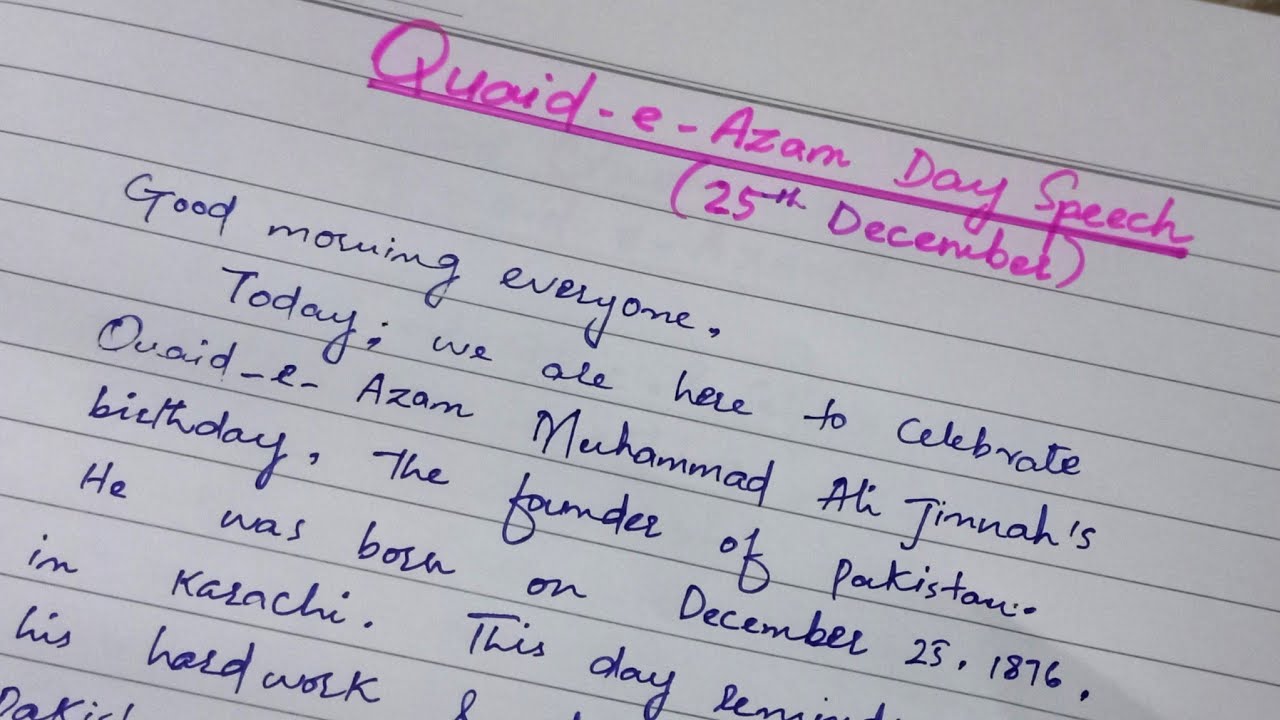 Quaid-e-Azam Day Speech
(25th December)
Good morning everyone,
Today, we are here to celebrate
Quaid-e-Azam Muhammad Ali Jinnah's
birthday, the founder of Pakistan.
He was born on December 25, 1876,
in Karachi. This day
his hardwork &